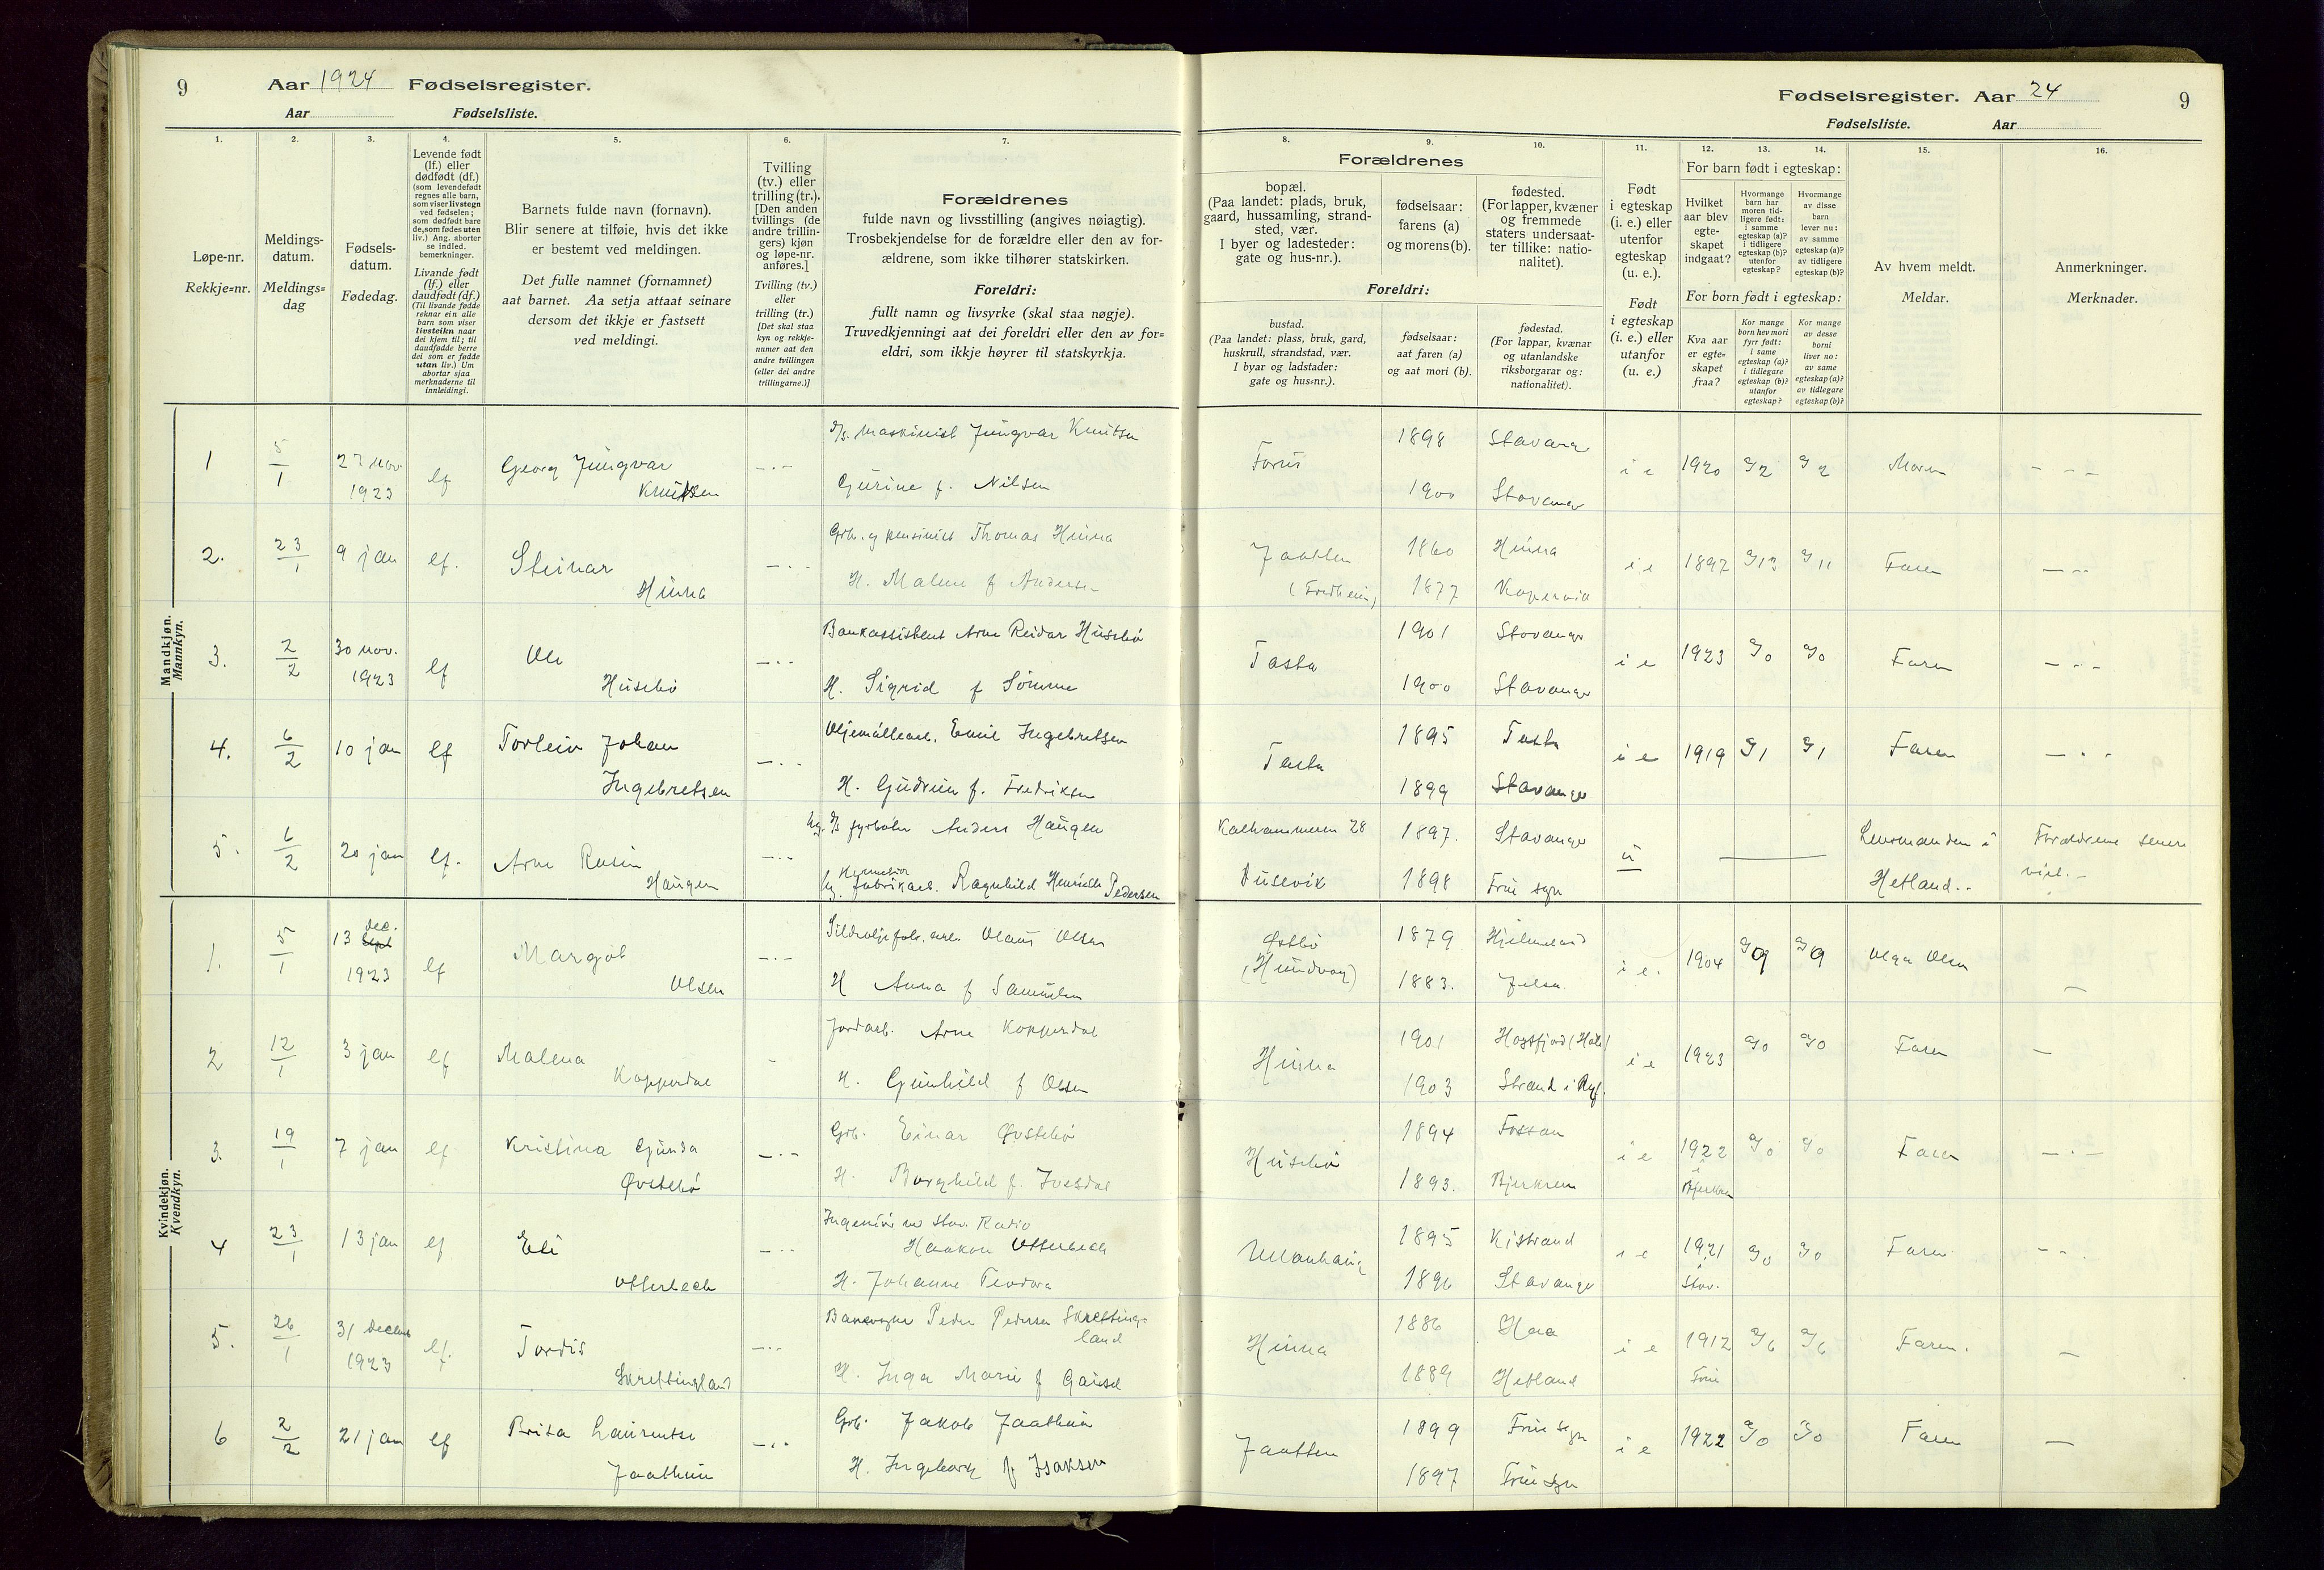 9
Aar 1924 Fødselsregister.
Aar Fødselsliste.
Fødselsregister. Aar 24
9
Fødselsliste. Aar
1.
2.
3.
4.
5.
6.
7.
8.
9.
10.
11.
12.
13.
14.
15.
16.
Løpe-nr.
Rekkje=nr.
Meldings-
datum.
Meldings=
dag
Fødsels-
datum.
Fødedag.
Levende født
(lf.) eller
dødfødt (df.)
(som levendefødt
regnes alle barn,
som viser livstegn
ved fødselen;
som dødfødt bare
de, som fødes uten
liv.) Ang. aborter
se indled.
bemerkninger.
Livande født
(lf.) eller
daudfødt (df.)
(Til livande fødde
reknar ein alle
barn som viser
livsteikn naar
dei kjem til; til
daudfødde berre
dei som er fødde
utan liv.) Um
abortar sjaa
merknaderne til
innleidingi.
Barnets fulde navn (fornavn).
Blir senere at tilføie, hvis det ikke
er bestemt ved meldingen.
Det fulle namnet (fornamnet)
aat barnet. Aa setja attaat seinare
dersom det ikkje er fastsett
ved meldingi.
Tvilling
(tv.) eller
trilling (tr.).
[Den anden
tvillings (de
andre trillin-
gers) kjøn
og løpe-nr.
anføres.]
Tvilling (tv.)
eller
trilling (tr.)
[Det skal staa
kyn og rekkje-
numer aat den
andre tvillingen
(eller dei andre
trillingarne.)]
Forældrenes
fulde navn og livsstilling (angives nøiagtig).
Trosbekjendelse for de forældre eller den av for-
ældrene, som ikke tilhører statskirken.
Foreldri:
fullt namn og livsyrke (skal staa nøgje).
Truvedkjenningi aat dei foreldri eller den av for=
eldri, som ikkje høyrer til statskyrkja.
Forældrenes
bopæl.
(Paa landet: plads, bruk,
gaard, hussamling, strand-
sted, vær.
I byer og ladesteder:
gate og hus-nr.).
fødselsaar:
farens (a)
og morens (b).
fødested.
(For lapper, kvæner
og fremmede
staters undersaat-
ter tillike: natio-
nalitet).
Foreldri:
bustad.
(Paa landet: plass, bruk, gard,
huskrull, strandstad, vær.
I byar og ladstader:
gate og hus=nr.).
fødselsaar:
aat faren (a)
og aat mori (b).
fødestad.
(For lappar, kvænar
og utanlandske
riksborgarar og:
nationalitet).
Født
i egteskap
(i. e.) eller
utenfor
egteskap
(u. e.).
Født
i egteskap
(i. e.) eller
utanfor
(u. e.)
For barn født i egteskap:
Hvilket
aar blev
egte-
skapet
indgaat?
Hvormange
barn har
moren tid-
ligere født:
i samme
egteskap (a)?
i tidligere
egteskap (b)?
utenfor
egteskap?
Hvormange
av disse
barn
lever nu:
av samme
egteskap (a)?
av tidligere
egteskap (b)?
For born født i egteskap:
Kva aar
er egte=
skapet
fraa?
Kor mange
born hev mori
fyrr født:
i same
egteskap (a)?
i tidlegare
egteskap (b)?
utanfor
egteskap?
Kor mange
av desse
borni
liver no:
av same
egteskap (a)?
av tidlegare
egteskap (b)?
Av hvem meldt.
Meldar.
Anmerkninger.
Merknader.
Mandkjøn.
Mannkyn.
1 5/1 27 nov. 1923 lf Georg Jüngvar Knutsen
Maskinist Jüngvar Knutsen
Gurine f. Nilsen
Forus 1898 Stavanger
1900 Stavanger
i e 1920 2 2 Moren
2. 23/1 9 jan lf. Steinar Hinna
Grb. og pensionist Thomas Hinna
H. Malene f Andersen
Jaatten (Fredheim) 1860 Hinna
1877 Kopervik
i e 1897 13 11 Faren
3. 2/2 30 nov. 1923 lf Ole Husebø
Bankassistent Arne Reidar Husebø
H. Sigrid f Sømme
Tasta 1901 Stavanger
1900 Stavanger
i e 1923 0 0 Faren
4. 6/2 10 jan lf Torleiv Johan Ingebretsen
Oljemøllearb. Emil Ingebretsen
H. Gudrun f. Fredriksen
Tasta 1895 Tasta
1899 Stavanger
i e 1919 1 1 Faren
5. 6/2 20 jan lf. Arne Rusin Haugen
fyrbøter Anders Haugen
Hermetik fabrikarb. Ragnhild Henriette Pedersen
Kalhammeren 28
Dusevik 1897. Stavanger
1898 Frue sogn
u Lensmanden i
Hetland.. Forældrene senere
viet.
Kvindekjøn.
Kvendkyn.
1. 5/1 13 dec. 1923 lf Margot Olsen
Sildoljefab. arb. Olaus Olsen
H Anna f Samuelsen
Østbø
(Hundvåg) 1879 Hjelmeland
1883. Jelsa
i e. 1904 9 9 Olga Olsen
2 12/1 3 jan lf Malena Kopperdal
Jordarb. Arne Kopperdal
H. Gunhild f Olsen
Hinna 1901 Høgsfjord (Hole)
1903 Strand i Ryf.
i e 1923 0 0 Faren
3. 19/1 7 jan lf Kristina Gunda Øvstebø
Grb. Einar Øvstebø
H. Borghild f. Ivesdal
Husebø 1894 Fossan
1893. Bjerkrem
i e 1922 i Bjerkrem 0 0 Faren
4 23/1 13 jan lf Eli Otterbech
Ingeniør ved Stav. Radio
Haakon Otterbech
H. Johanne Teodora
Ullanhaug 1895 Kistrand
1896 Stavanger
i e 1921 i Stav. 0 0 Faren
5. 26/1 31 decbr 1923 lf. Tordis Skrettingland
Banevogter Peder Pedersen Skrettings-
land
H. Inga Marie f Gausel
Hinna 1886 Haa
1889 Hetland
i e 1912 Frue 6 6 Faren.
6 2/2 21 jan lf Brita Laurentse Jaathun
Grb. Jakob Jaathun
H. Ingeborg f Isaksen
Jaatten 1899 Frue sogn
1897 Frue sogn
i e 1922 0 0 Faren